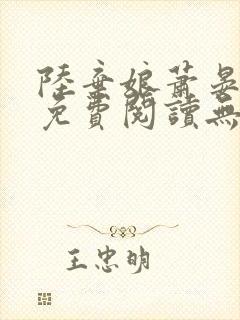 陸棄娘蕭晏
免費閱讀無
王忠明